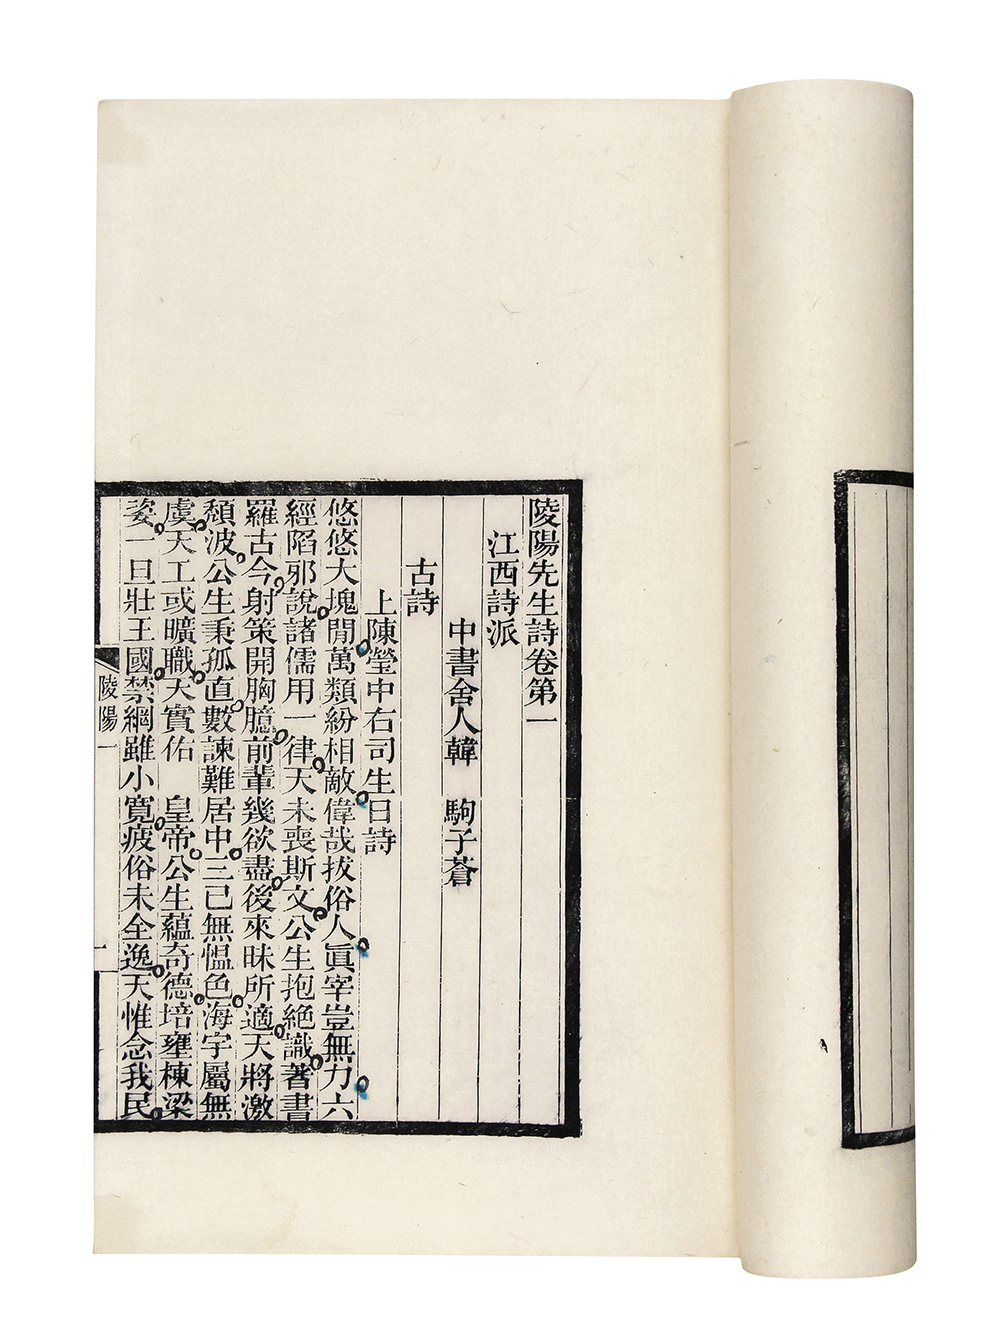 陵陽先生詩卷第一
江西詩派
中書舍人韓　駒子蒼
古詩
上陳瑩中右司生日詩
悠悠大塊閒萬類紛相敵偉哉拔俗人眞宰豈無力六
經陷邪說諸儒用一律天未喪斯文公生抱絕識著書
羅古今射策開胸臆前輩幾欲盡後來昧所適天將激
頹波公生秉孤直數諫難居中三已無慍色海宇屬無
虞天工或曠職天實佑　皇帝公生蘊奇德培壅棟梁
姿一旦壯王國禁綱雖小寬疲俗未全逸天惟念我民
陵陽一
一